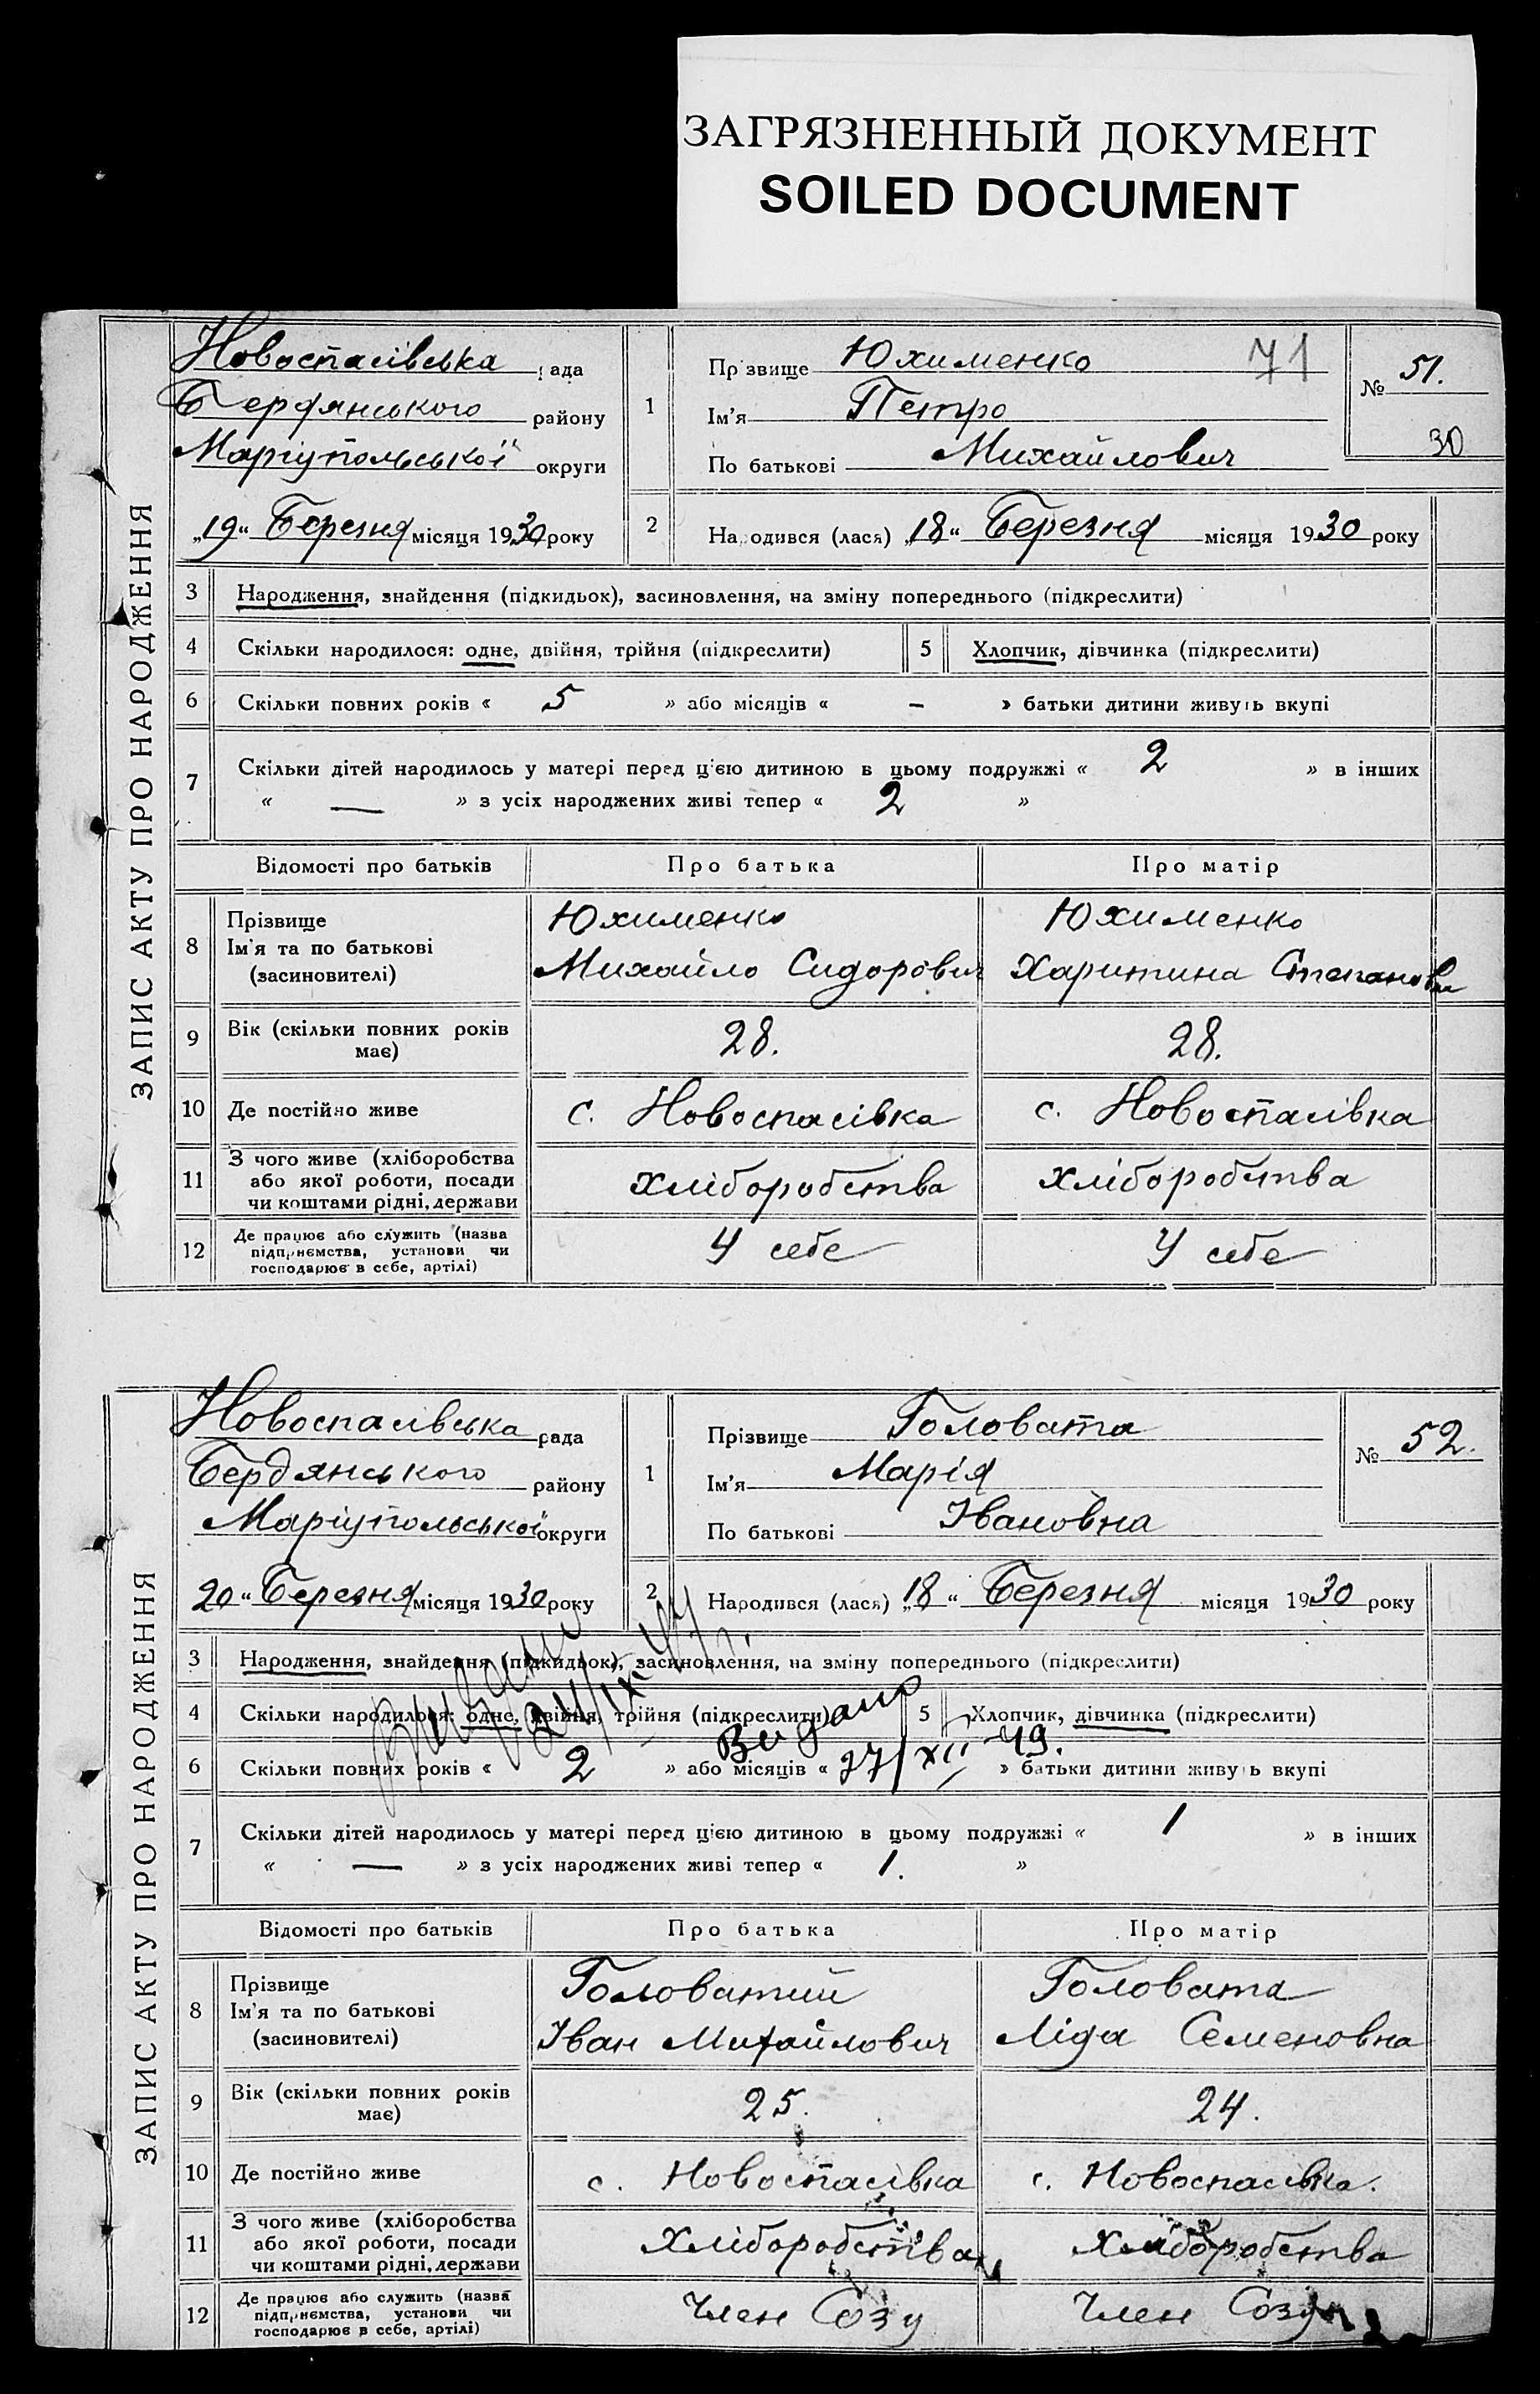 ЗАГРЯЗНЕННЫЙ ДОКУМЕНТ
SOILED DOCUMENT
ЗАПИС АКТУ ПРО НАРОДЖЕННЯ
Новоспасівська рада
Бердянського району
Маріупольської округи
„19“ Березня місяця 1930 року
1
Прізвище Юхименко
71
Ім'я Петро
По батькові Михайлович
№ 51.
30
2
Народився (лася) „18“ Березня місяця 1930 року
3 Народження, знайдення (підкидьок), засиновлення, на зміну попереднього (підкреслити)
4 Скільки народилося: одне, двійня, трійня (підкреслити) 5 Хлопчик, дівчинка (підкреслити)
6 Скільки повних років « 5 » або місяців « – » батьки дитини живуть вкупі
7 Скільки дітей народилось у матері перед цією дитиною в цьому подружжі « 2 » в інших
« — » з усіх народжених живі тепер « 2 »
Відомості про батьків Про батька Про матір
8 Прізвище Юхименко Юхименко
Ім'я та по батькові Михайло Сидорович Харитина Степановна
(засиновителі)
9 Вік (скільки повних років має) 28. 28.
10 Де постійно живе с. Новоспасівка с. Новоспасівка
11 З чого живе (хліборобства
або якої роботи, посади хліборобства хліборобства
чи коштами рідні, держави
12 Де працює або служить (назва
підприємства, установи чи У себе У себе
господарює в себе, артілі)
ЗАПИС АКТУ ПРО НАРОДЖЕННЯ
Новоспасівська рада
Бердянського району
Маріупольської округи
20“ Березня місяця 1930 року
1
Прізвище Головата
Ім'я Марія
По батькові Івановна
№ 52.
2
Народився (лася) „18“ Березня місяця 1930 року
3 Народження, знайдення (підкидьок), засиновлення, на зміну попереднього (підкреслити)
4 Скільки народилося: одне, двійня, трійня (підкреслити) 5 Хлопчик, дівчинка (підкреслити)
Видано
27/XII 49.
6 Скільки повних років « 2 » або місяців « » батьки дитини живуть вкупі
7 Скільки дітей народилось у матері перед цією дитиною в цьому подружжі « 1 » в інших
« — » з усіх народжених живі тепер « 1. »
Відомості про батьків Про батька Про матір
8 Прізвище Головатий Головата
Ім'я та по батькові Іван Михайлович Ліда Семеновна
(засиновителі)
9 Вік (скільки повних років має) 25. 24.
10 Де постійно живе с. Новоспасівка с. Новоспасівка.
11 З чого живе (хліборобства
або якої роботи, посади Хліборобства Хліборобства
чи коштами рідні, держави
12 Де працює або служить (назва
підприємства, установи чи Член Созу Член Созу
господарює в себе, артілі)